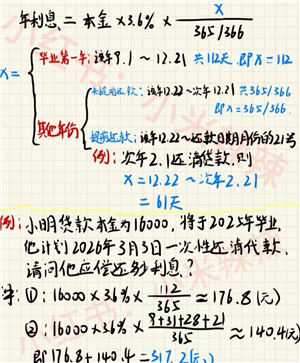 年利息 = 本金 ×3.6% × X
365/366
X=
毕业第一年: 该年9.1 ~ 12.21 共112天. 即X=112.
其他年份
未提前还款: 该年12.22~次年12.21 共365/366
即X=365/366.
提前还款: 该年12.22~还款日期月份的21号
例: 次年2.1还清贷款,则
X=12.22 ~ 次年2.21
=61天
例: 小明贷款本金为16000, 将于2025年毕业,
他计划2026年3月3日一次性还清贷款,
请问他应偿还多少利息?
①: 16000 × 3.6% × 112
365 ≈ 176.8 (元)
②: 16000 × 3.6% × 9+31+28+21
365 ≈ 140.4(元)
即 176.8+140.4=317.2(元)